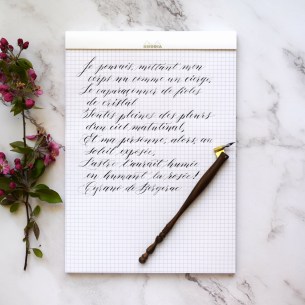 Rhodia
Je pouvais, mettant mon
corps nu comme un cierge,
Le caparaçonner de fioles
de cristal
Toutes pleines des pleurs
d'un ciel matutinal,
Et ma personne, alors, au
soleil exposée,
L'astre l'aurait humée
en humant la rosée!
Cyrano de Bergerac